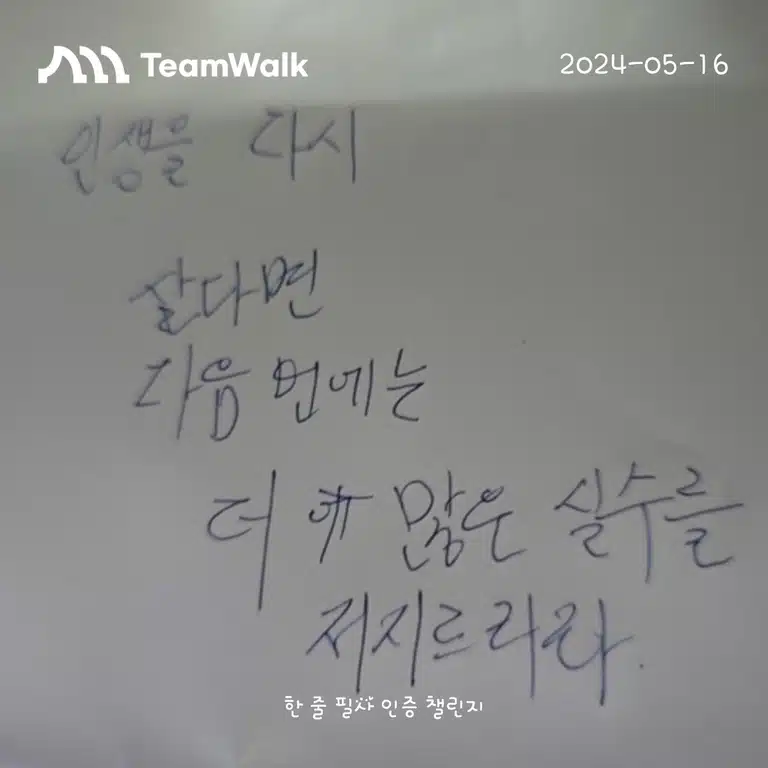 TeamWalk 2024-05-16
인생을 다시
살다면
다음 번에는
더 많은 실수를
저지르리라.
한 줄 필사 인증 챌린지